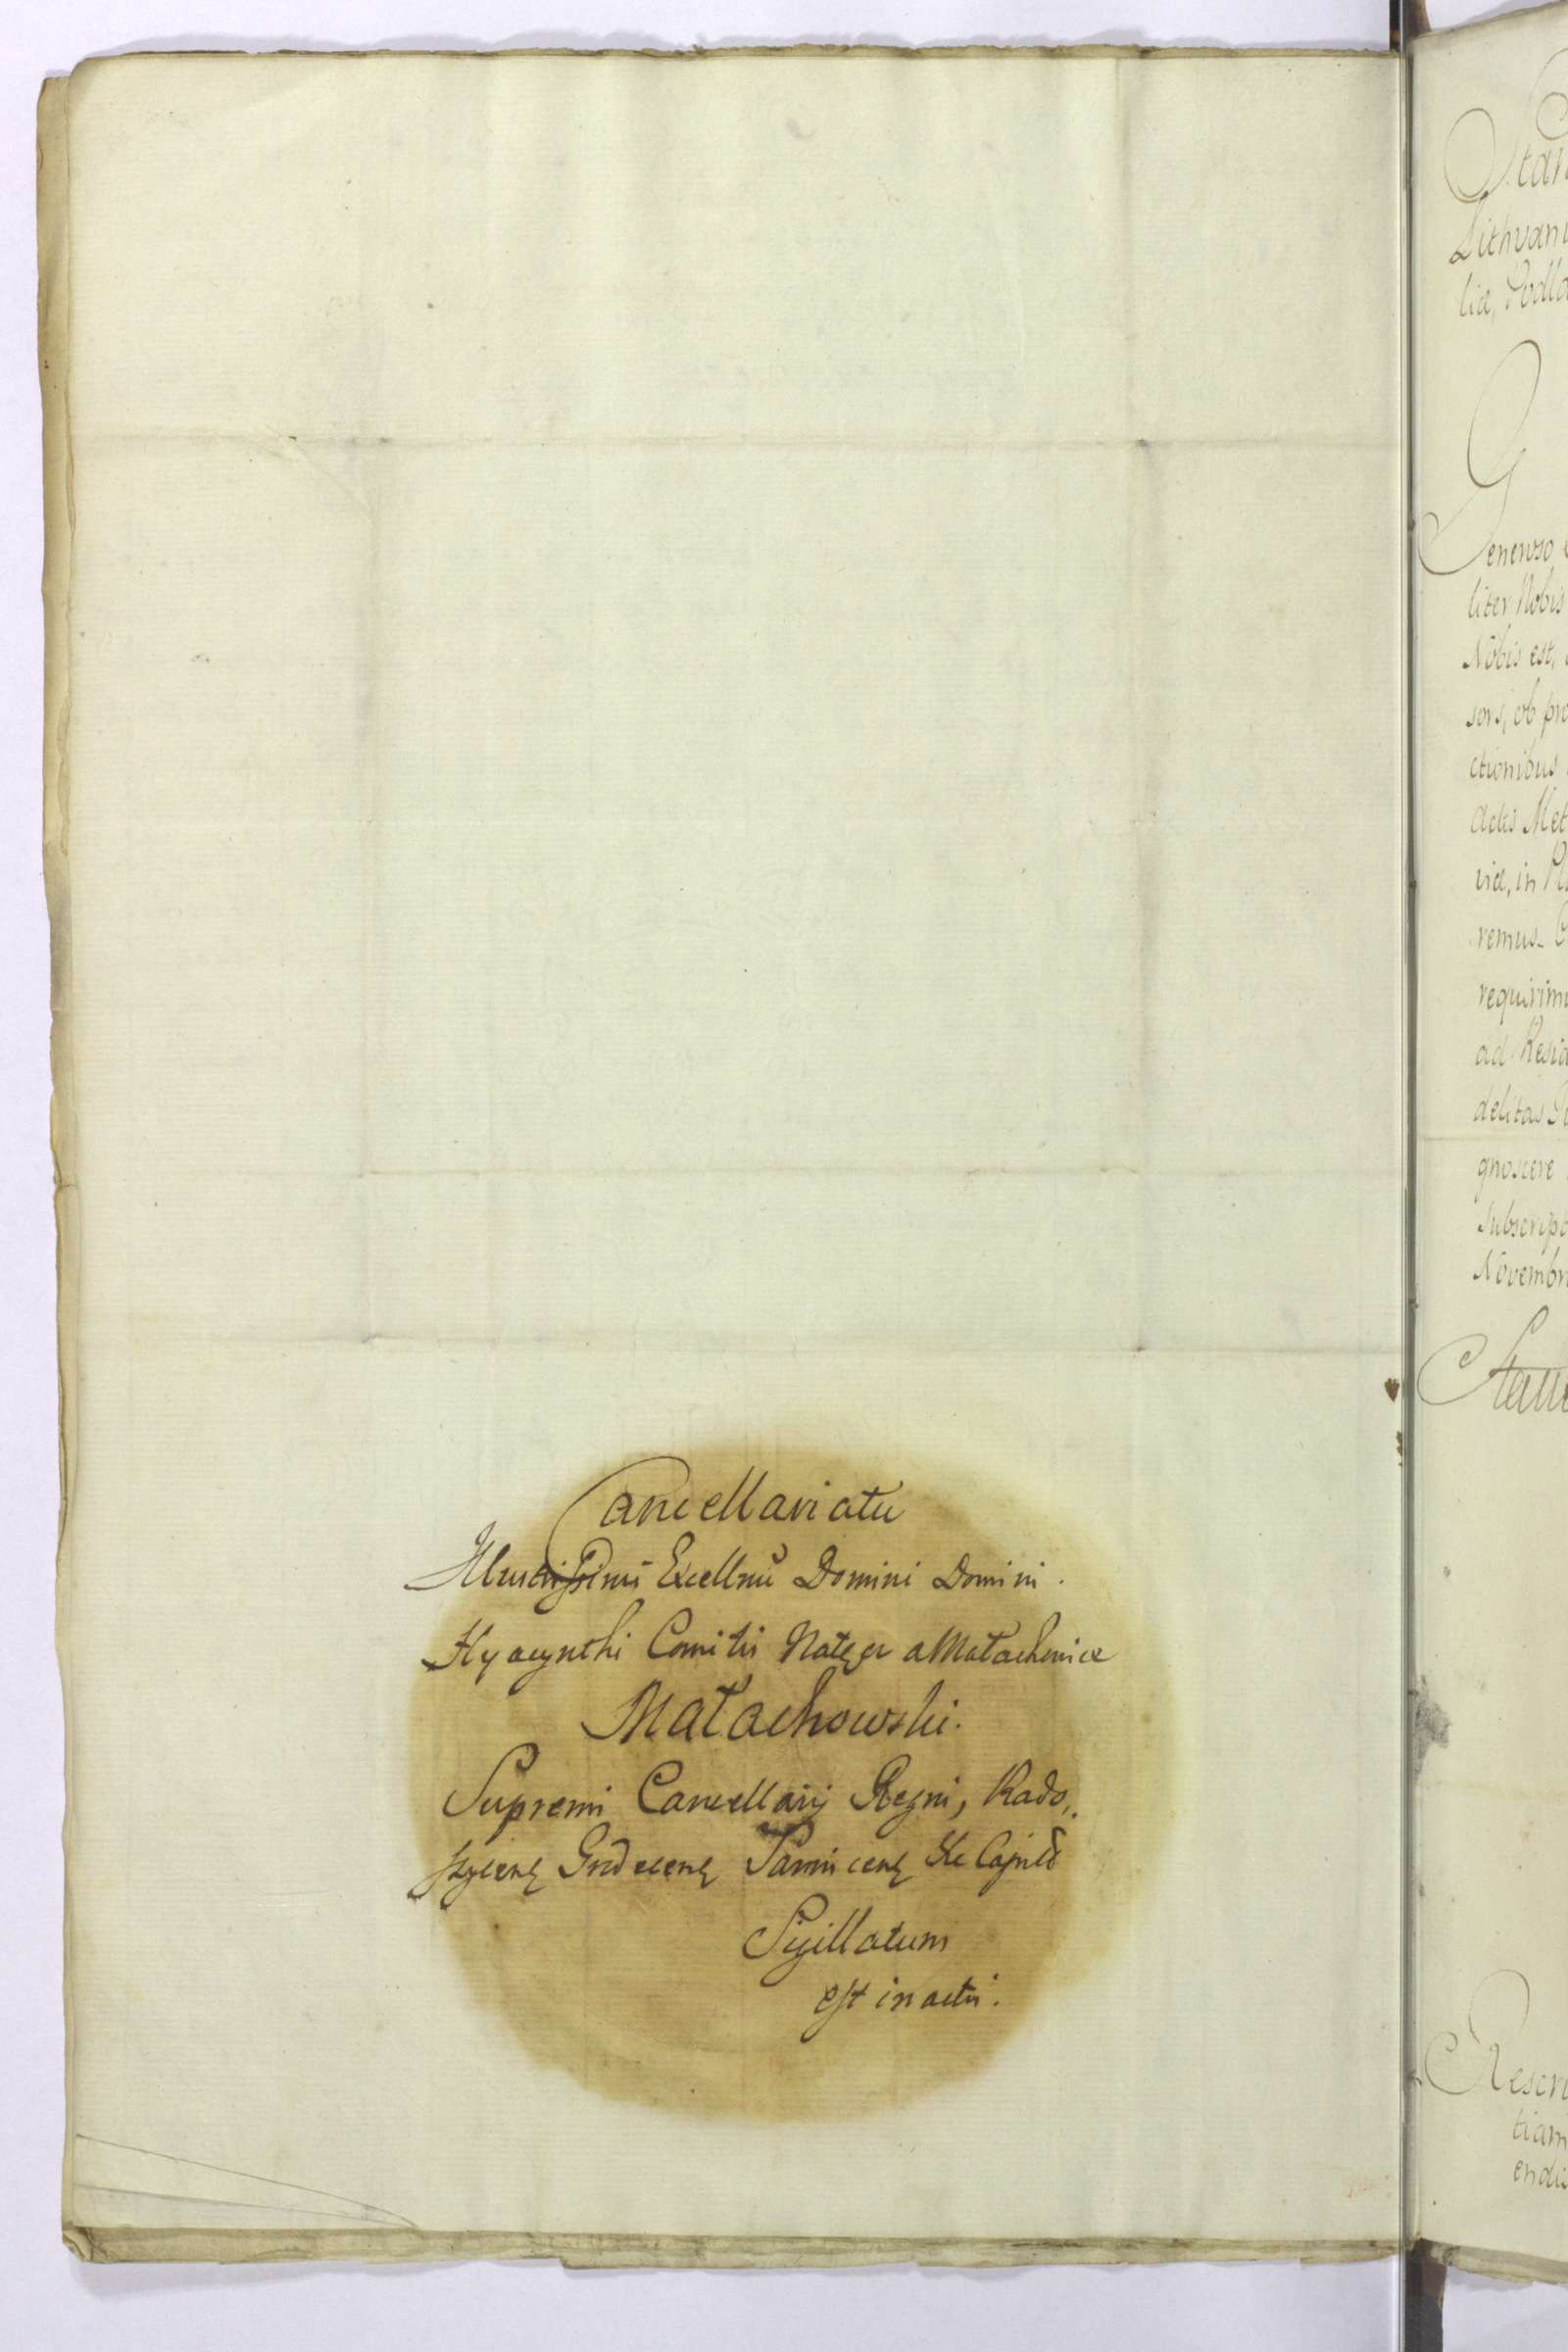 Cancellariatu
Illustrissimi Excellmi Domini Domini.
Hyacynthi Comitis Natęcz a Małachowice
Małachowski.
Supremi Cancellarij Regni, Rado,,
szycen Grodecen &c
Sigillatum
est in actis.
Stan
Lithvani
liæ, Podla
Generoso
liter Nobis
Nobis est,
soris, ob pro
ctionibus
Actis Met
viæ, in
remus.
requirim
ad Resid
delitas
gnoscere
subscript
Novembr
Rescri
tiam
endis